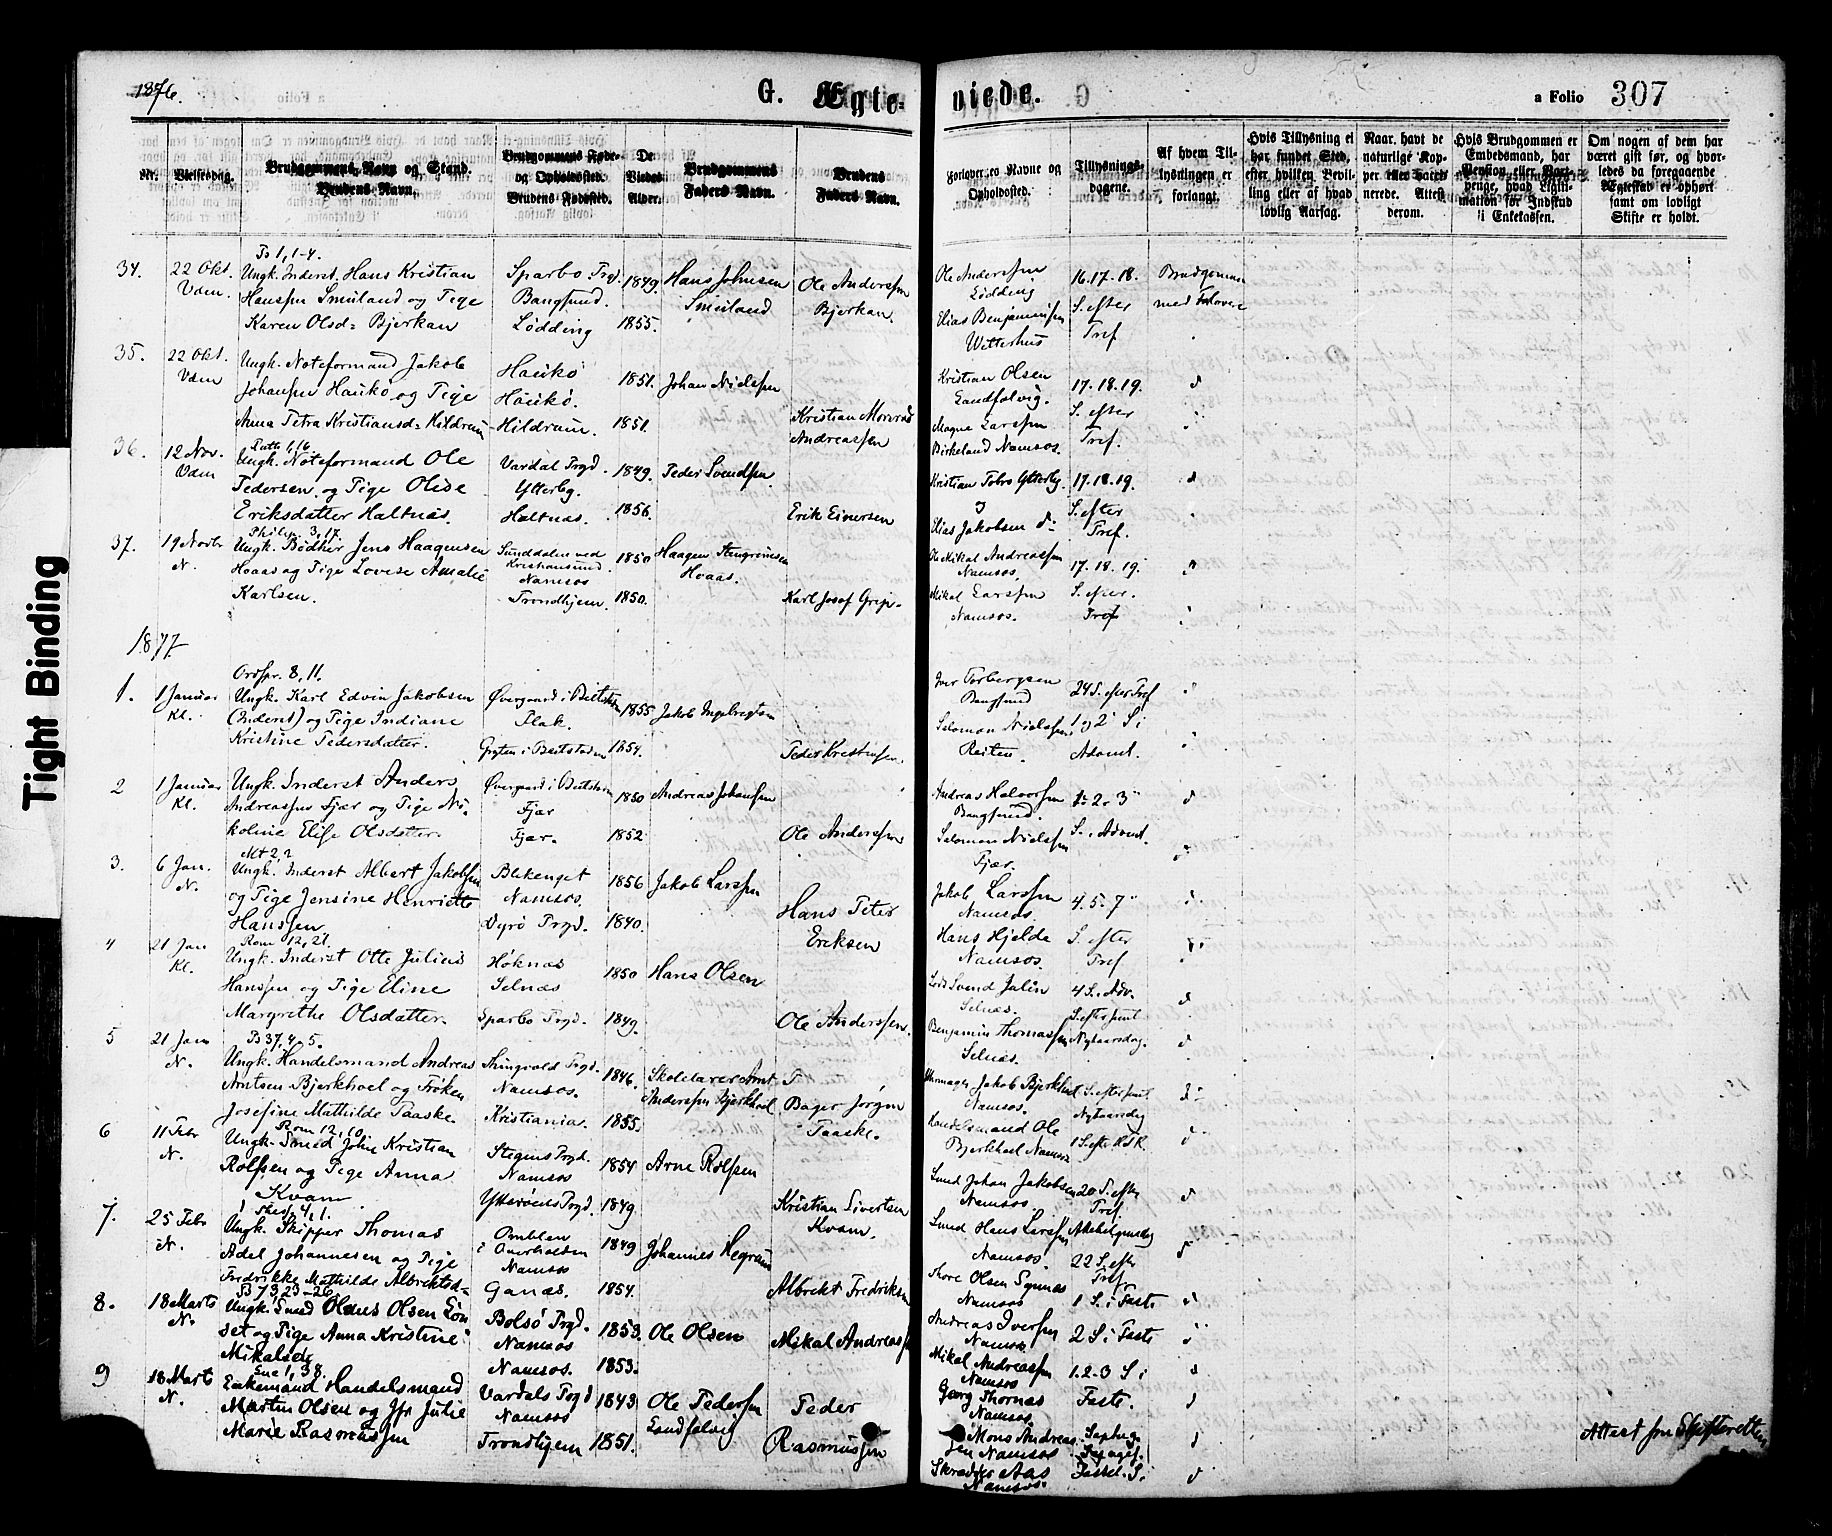 Tight Binding
1876.
G. Ægteviede.
a Folio 307
Nr.
Vielsesdag.
Brudgommens Navn og Stand.
Brudens Navn.
Brudgommens Føde-
og Opholdssted.
Brudens Fødested.
De
Viedes
Alder.
Brudgommens
Faders Navn.
Brudens
Faders Navn.
Forlovernes Navne og
Opholdssted.
Tillysnings-
dagene.
Af hvem Til-
lysningen er
forlangt.
Hvis Tillysning ei
har fundet Sted,
efter hvilken Bevil-
ling eller af hvad
lovlig Aarsag.
Naar havt de
naturlige Kop-
per eller vacci-
nerede. Attest
derom.
Hvis Brudgommen er
Embedsmand, har
Pension eller Vart-
penge, hvad Legiti-
mation for Indskud
i Enkekassen.
Om nogen af dem har
været gift før, og hvor-
ledes da foregaaende
Ægteskab er ophørt
samt om lovligt
Skifte er holdt.
34. 22 Okt. Vdm.
Ps 1, 1-4.
Ungk. Inderst Hans Kristian
Hanssen Smuland og Pige
Karen Olsd: Bjerkan
Sparbo Prgd.
Bangsund.
Lødding
1849.
1855.
Hans Johnsen
Smuland
Ole Anderssen
Bjerkan.
Ole Anderssen
Lødding
Elias Benjaminsen
Vetterhus
16. 17. 18.
S. efter
Tref
Brudgommen
med Forlovere
35. 22 Okt. Vdm
Ungk. Noteformand Jakob
Johansen Haukø og Pige
Anna Petra Kristiansd: Hildrum
Haukø
Haukø.
Hildrum.
1851.
1851.
Johan Nielssen
Kristian
Andreassen
Kristian Olsen
Landfalvig.
Magne Larssen
Birkeland Namsos.
17. 18. 19.
S. efter
Tref.
36. 12 Nov. Vdm
Ruth 1,16
Ungk. Noteformand Ole
Pedersen og Pige Olise
Eriksdatter Haltnæs.
Vardal Prgd.
Ytterby.
Haltnæs.
1849.
1856.
Peder Svendsen
Erik Einersen
Kristian Ytterby.
og
Elias Jakobsen d:
17. 18. 19.
S. efter
Tref.
37. 19 Novbr N.
Philip. 3,17.
Ungk. Bødker Jens Haagensen
Hoaas og Pige Lovise Amalie
Karlsen.
Sunddalen ved
Kristiansund.
Namsos
Trondhjem.
1850
1850.
Haagen
Hoaas.
Karl Josef Grip.
Mikal Andreassen
Namsos.
Mikal Larssen
Namsos.
17. 18. 19.
S. efter.
Tref
1877.
1. 1 Januar Kl.
Ordspr. 8, 11.
Ungk. Karl Edvin Jakobsen
(Inderst) og Pige Indiane
Kristine Pedersdatter.
Øvergaard i Beitstaden
Flak.
Gryten i Beitstaden
1855.
1854.
Jakob Ingebrigtsen
Peder Kristensen.
Iver Torbergsen
Bangsund
Salomon Nielssen
Reiten.
24 S. efter Tref
1 og 2 S. i
Advent.
2 1 Januar Kl.
Ungk. Inderst Anders
Andreassen Fjær og Pige Ni-
koline Elise Olsdatter.
Øvergaard i Beitstaden
Fjær
Fjær.
1850
1852
Andreas Johansen
Ole Anderssen
Andreas Halvorsen
Bangsund.
Salomon Nielssen
Fjær.
1. 2. 3
S. i Advent.
3. 6 Jan. N.
Mt 2,2
Ungk. Inderst Albert Jakobsen
og Pige Jensine Henriette
Hanssen
Blekenget
Namsos.
Vyrø Prgd.
1856
1840.
Jakob Larssen
Hans Peter
Eriksen
Jakob Larssen
Namsos.
Hans Hjelde
Namsos.
4. 5. 7
S. efter
Tref
4 21 Jan Kl.
Rom 12, 21.
Ungk. Inderst Otto Julius
Hanssen og Pige Eline
Margrethe Olsdatter.
Høknæs
Selnæs
Sparbo Prgd.
1850
1849.
Hans Olsen
Ole Anderssen.
Svend Jalin
Selnæs.
Benjamin Thomassen
Selnæs.
4 S. i Adv.
Nytaarsdag.
5 21 Jan N.
Ps 37, 4. 5.
Ungk. Handelsmand Andreas
Arntsen Bjerkhoel og Frøken
Josefine Mathilde Paaske.
Thingvold Prgd.
Namsos.
Kristiania.
1846.
1855.
Skolelærer Arnt
Anderssen Bjerkhoel
Bager Jørgen
Paaske.
Uhrmager Jakob Bjerkhoel
Namsos.
Handelsmand Ole
Bjerkhoel Namsos
Nytaarsdag
1 S. efter H3K.
6 11 Febr N.
Rom 12, 10.
Ungk. Smed John Kristian
Rolfsen og Pige Anna
Kvam
Stegens Prgd.
Namsos
Ytterøens Prgd.
1854
1849
Arne Rolfsen
Kristian Sivertsen
Kvam.
Smed Johan Jakobsen
Namsos.
Smed Hans Larssen
Namsos.
20 S. efter
Tref.
22 S. efter
Tref
7. 25 Febr N.
Ungk. Skipper Thomas
Adel Johannesen og Pige
Fredrikke Mathilde Albriktsd:
i Overhalden
Namsos
Ganæs.
1849
1854.
Johannes Hegrum
Albrikt Fredriksen
Thore Olsen
Namsos
Andreas Iversen
Namsos
1 S. i Faste
2 S i Faste
8. 18 Marts N.
Ps 73,23-26.
Ungk. Smed Olaus Olsen Lön
set og Pige Anna Kristine
Mikalsd:
Bolsø Prgd.
Namsos
Namsos.
1853.
1853.
Ole Olsen
Mikal Andreassen
Mikal Andreassen
Namsos
Georg Thomas
Namsos.
1. 2. 3 S i
Faste.
9 18 Marts N.
Luc 1, 38.
Enkemand Handelsmand
Martin Olsen og Jfr Julie
Marie Rasmussen
Vardals Prgd
Namsos
Trondhjem
1843.
1851.
Ole Pedersen
Landfalvig
Peder
Rasmussen
Mons Andreas-
sen Namsos
Skrædder Aas
Namsos.
Fastel. S.
Attest fra Skifteretten